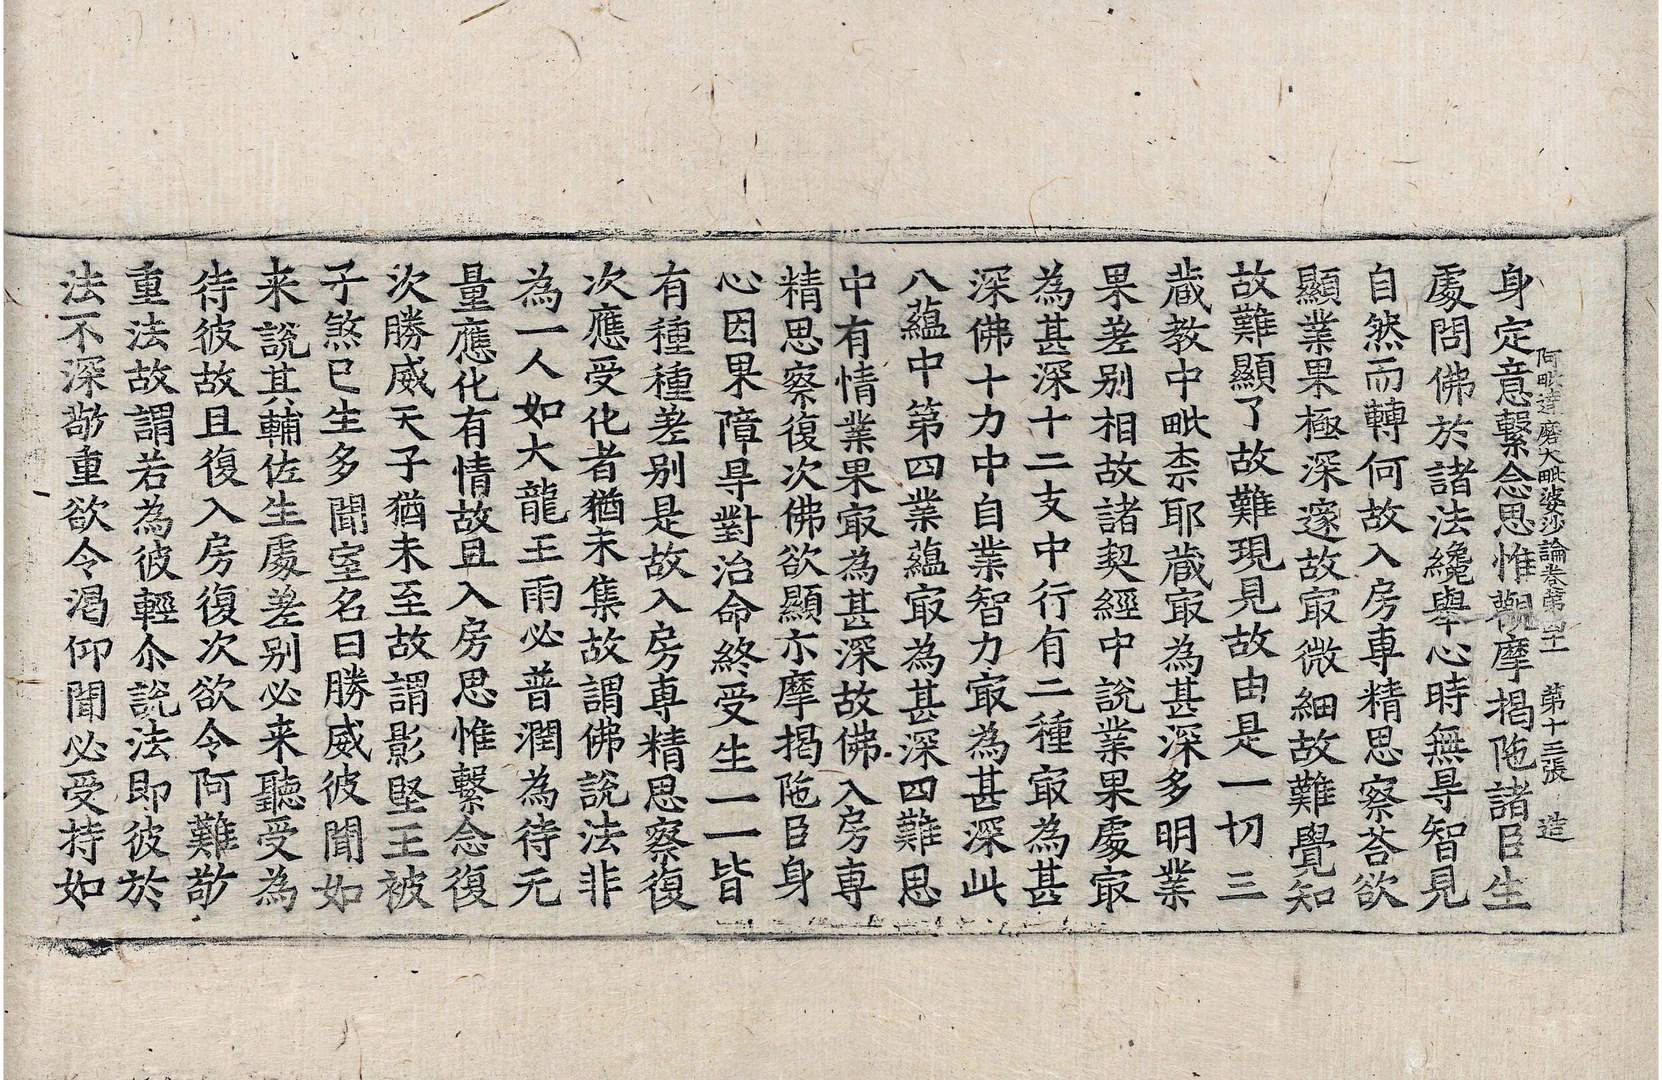 阿毗達磨大毗婆沙論卷第四十一　第十三張　造
身定意繫念思惟觀摩揭陁諸臣生
處問佛於諸法纔舉心時無㝵智見
自然而轉何故入房專精思察荅欲
顯業果極深邃故㝡微細故難覺知
故難顯了故難現見故由是一切三
蔵教中毗柰耶蔵㝡為甚深多明業
果差别相故諸契經中說業果處㝡
為甚深十二支中行有二種㝡為甚
深佛十力中自業智力㝡為甚深此
八蘊中第四業蘊㝡為甚深四難思
中有情業果㝡為甚深故佛入房專
精思察復次佛欲顯示摩揭陁臣身
心因果障㝵對治命終受生一一皆
有種種差别是故入房專精思察復
次應受化者猶未集故謂佛說法非
為一人如大龍王雨必普潤為待无
量應化有情故且入房思惟繫念復
次勝威天子猶未至故謂影堅王被
子煞已生多聞室名曰勝威彼聞如
来說其輔佐生處差别必来聽受為
待彼故且復入房復次欲令阿難敬
重法故謂若為彼輕尒說法即彼於
法不深敬重欲令渇仰聞必受持如